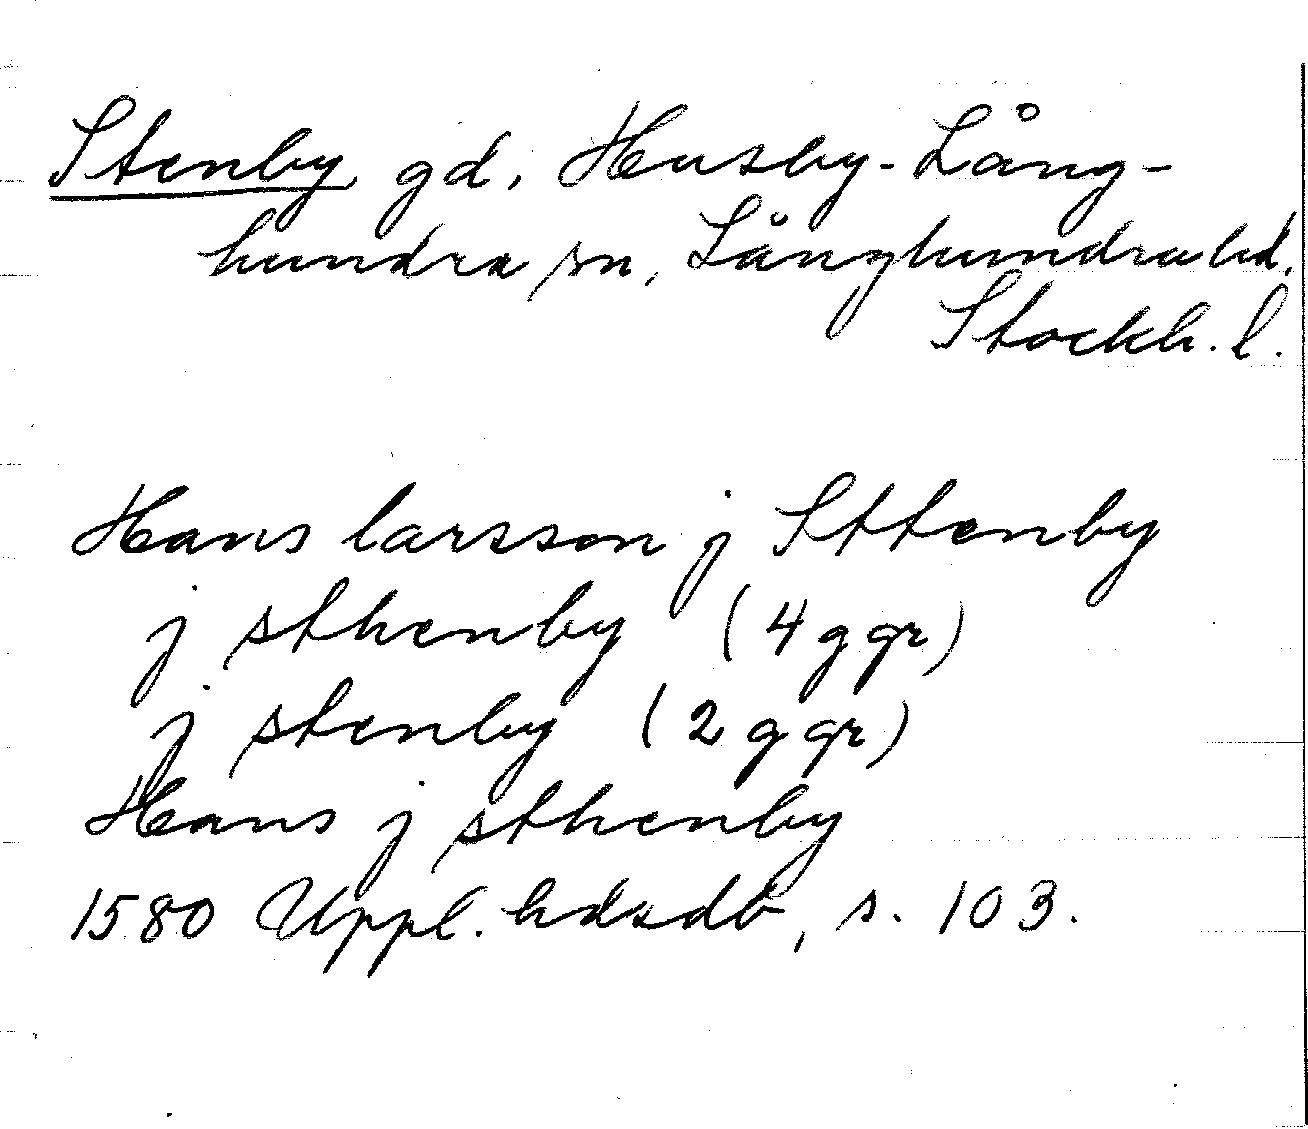 Stenby gd, Husby-Lång-
hundra sn, Långhundra hd.
Stockh. l.
Hans larsson j Sttenby
j sthenby (4 ggr)
j stenby (2 ggr)
Hans j sthenby
1580 Uppl. hdsdb, s. 103.